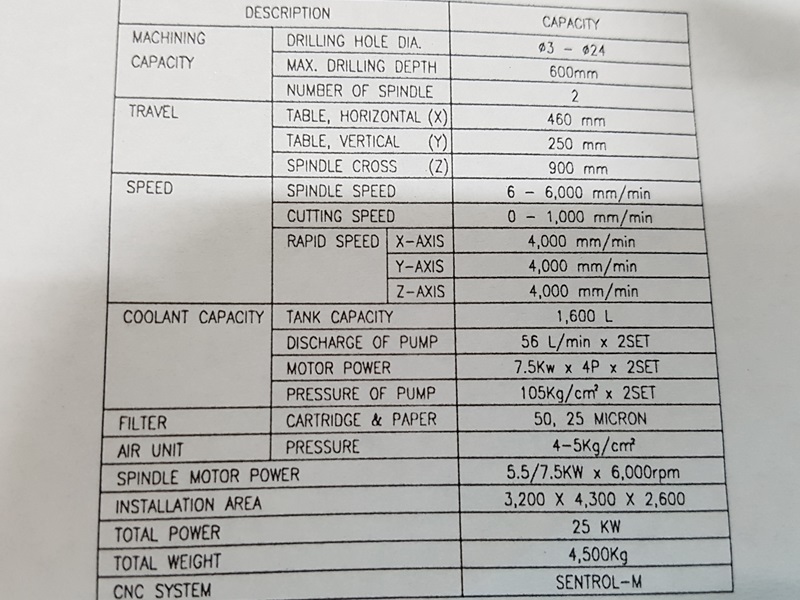 DESCRIPTION CAPACITY
MACHINING CAPACITY DRILLING HOLE DIA. ø3 - ø24
MAX. DRILLING DEPTH 600mm
NUMBER OF SPINDLE 2
TRAVEL TABLE, HORIZONTAL (X) 460 mm
TABLE, VERTICAL (Y) 250 mm
SPINDLE CROSS (Z) 900 mm
SPEED SPINDLE SPEED 6 - 6,000 mm/min
CUTTING SPEED 0 - 1,000 mm/min
RAPID SPEED X-AXIS 4,000 mm/min
Y-AXIS 4,000 mm/min
Z-AXIS 4,000 mm/min
COOLANT CAPACITY TANK CAPACITY 1,600 L
DISCHARGE OF PUMP 56 L/min x 2SET
MOTOR POWER 7.5Kw x 4P x 2SET
PRESSURE OF PUMP 105Kg/cm² x 2SET
FILTER CARTRIDGE & PAPER 50, 25 MICRON
AIR UNIT PRESSURE 4-5Kg/cm²
SPINDLE MOTOR POWER 5.5/7.5KW x 6,000rpm
INSTALLATION AREA 3,200 X 4,300 X 2,600
TOTAL POWER 25 KW
TOTAL WEIGHT 4,500Kg
CNC SYSTEM SENTROL-M